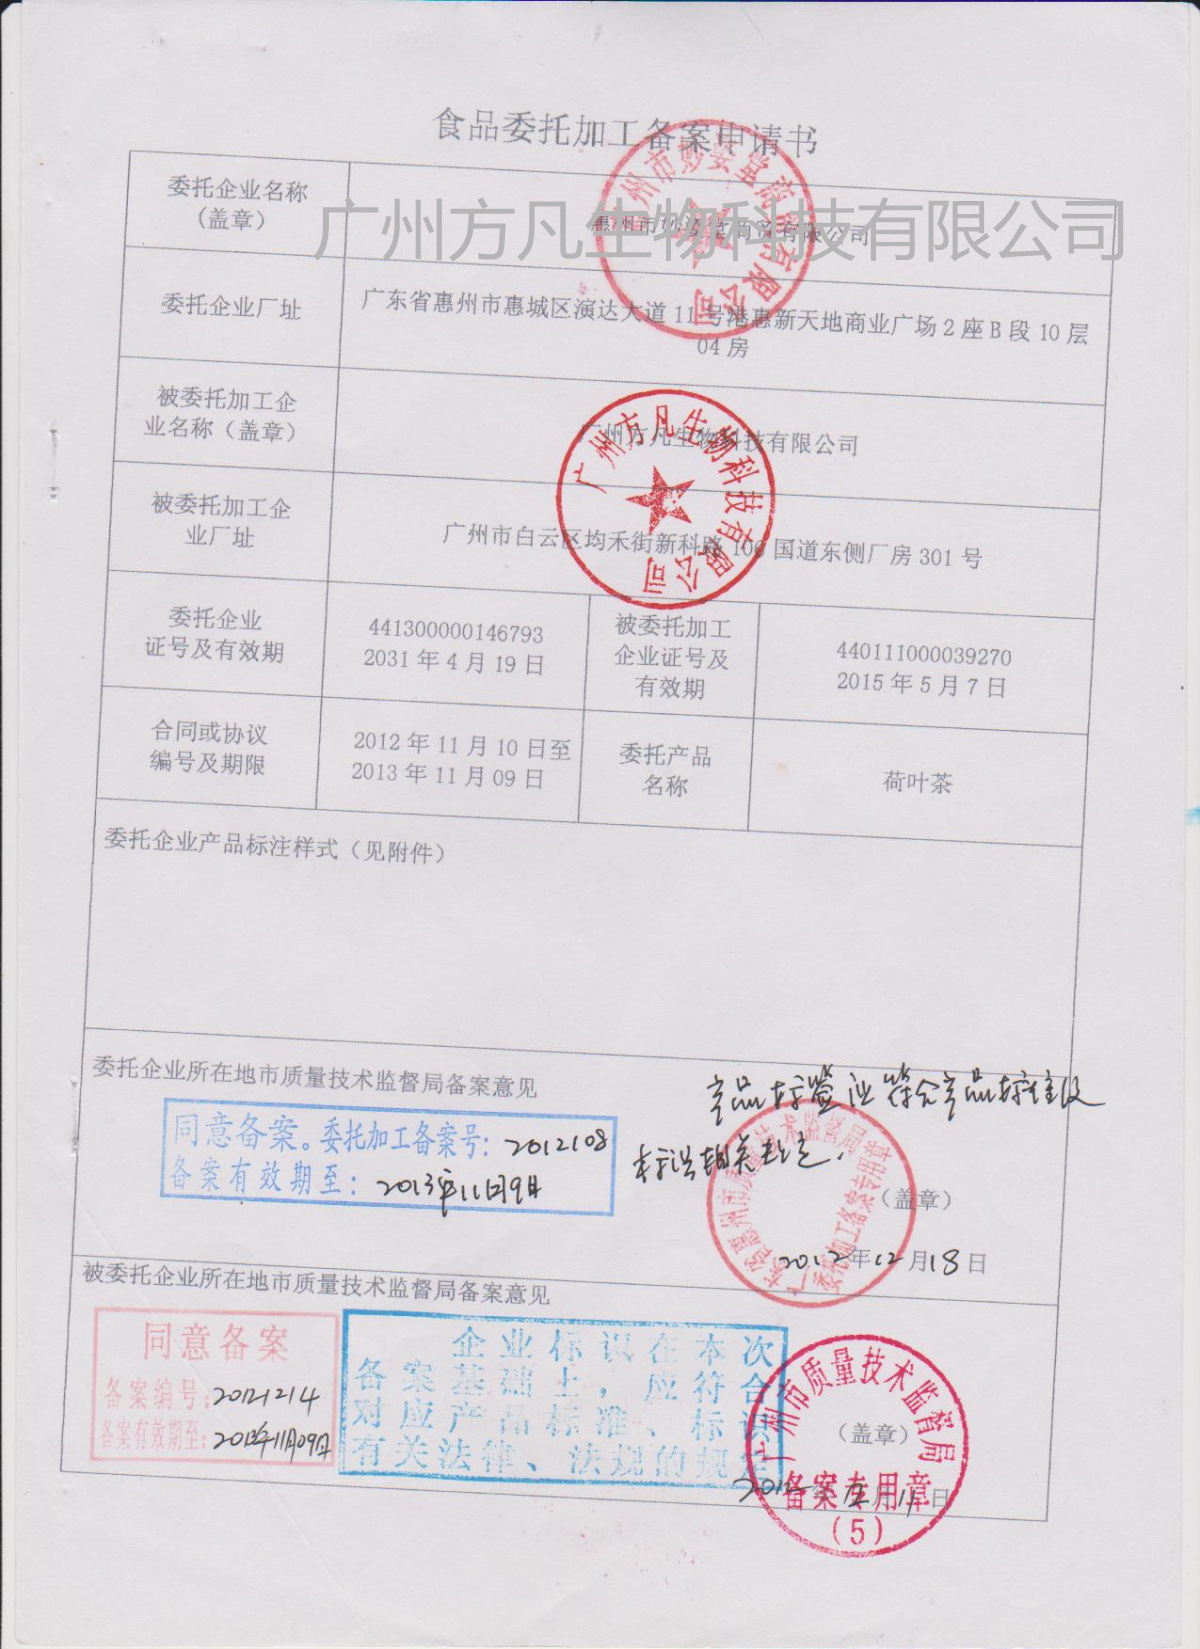 食品委托加工备案申请书
委托企业名称
(盖章)
惠州市妙姿堂商贸有限公司
广州方凡生物科技有限公司
委托企业厂址
广东省惠州市惠城区演达大道11号港惠新天地商业广场2座B段10层
04房
被委托加工企
业名称(盖章)
广州方凡生物科技有限公司
广州方凡生物科技有限公司
被委托加工企
业厂址
广州市白云区均禾街新科路106国道东侧厂房301号
委托企业
证号及有效期
441300000146793
2031年4月19日
被委托加工
企业证号及
有效期
440111000039270
2015年5月7日
合同或协议
编号及期限
2012年11月10日至
2013年11月09日
委托产品
名称
荷叶茶
委托企业产品标注样式(见附件)
委托企业所在地市质量技术监督局备案意见
同意备案。委托加工备案号:2012108
备案有效期至:2013年11月9日
产品标签应符合产品标准及
标识相关规定.
广东省惠州市质量技术监督局
委托加工备案专用章
(盖章)
2012年12月18日
被委托企业所在地市质量技术监督局备案意见
同意备案
备案编号:20121214
备案有效期至:2013年11月09日
企业标识在本次
备案基础上,应符合
对应产品标准、标识
有关法律、法规的规定
广州市质量技术监督局
(盖章)
备案专用章
(5)